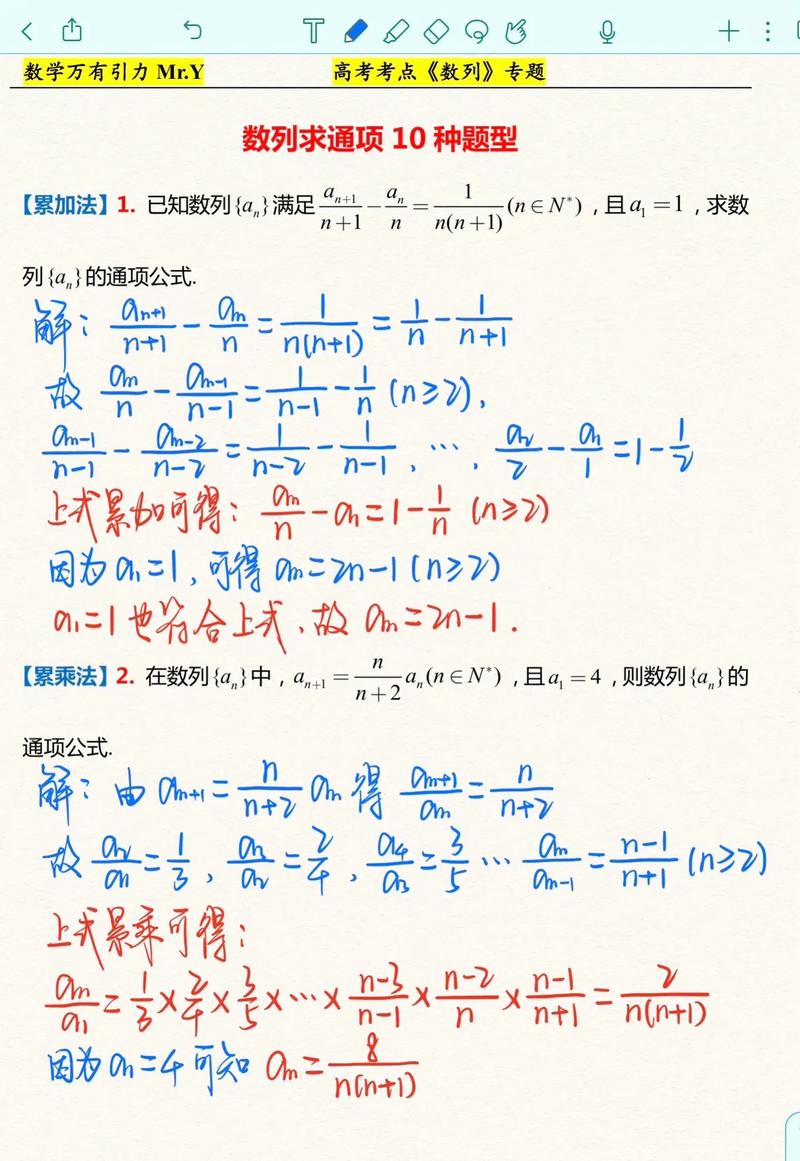 数学万有引力 Mr.Y 高考考点《数列》专题
数列求通项 10 种题型
【累加法】1. 已知数列{aₙ}满足 aₙ₊₁/(n+1) − aₙ/n = 1/(n(n+1)) (n∈N*)，且 a₁=1，求数
列{aₙ}的通项公式.
解：aₙ₊₁/(n+1) − aₙ/n = 1/(n(n+1)) = 1/n − 1/(n+1)
故 aₙ/n − aₙ₋₁/(n−1) = 1/(n−1) − 1/n (n≥2),
aₙ₋₁/(n−1) − aₙ₋₂/(n−2) = 1/(n−2) − 1/(n−1), …, a₂/2 − a₁/1 = 1 − 1/2
上式累加可得：aₙ/n − a₁ = 1 − 1/n (n≥2)
因为 a₁=1, 可得 aₙ=2n−1 (n≥2)
a₁=1 也符合上式、故 aₙ=2n−1.
【累乘法】2. 在数列{aₙ}中，aₙ₊₁ = n/(n+2) aₙ(n∈N*)，且 a₁=4，则数列{aₙ}的
通项公式.
解：由 aₙ₊₁ = n/(n+2) aₙ 得 aₙ₊₁/aₙ = n/(n+2)
故 a₂/a₁ = 1/3, a₃/a₂ = 2/4, a₄/a₃ = 3/5 … aₙ/aₙ₋₁ = (n−1)/(n+1) (n≥2)
上式累乘可得：
aₙ/a₁ = 1/3 × 2/4 × 3/5 × … × (n−3)/(n−1) × (n−2)/n × (n−1)/(n+1) = 2/(n(n+1))
因为 a₁=4 可知 aₙ = 8/(n(n+1))